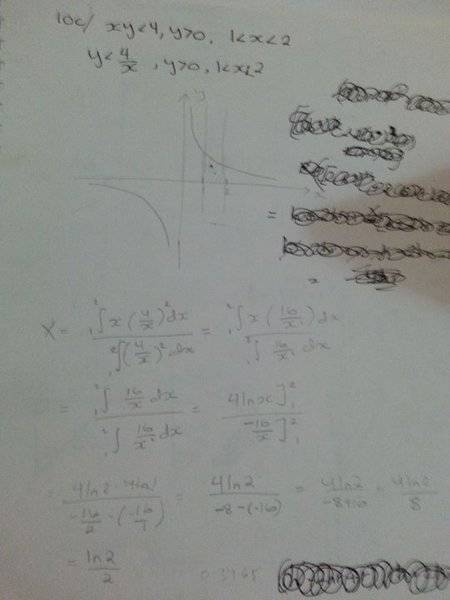 10c/ xy<4, y>0, 1<x<2
y< 4/x , y>0, 1<x<2
y
x
2
=
X = ₁²∫ x (4/x)² dx / ₁²∫ (4/x)² dx = ₁²∫ x (16/x²) dx / ₁²∫ 16/x² dx
= ₁²∫ 16/x dx / ₁²∫ 16/x² dx = 4lnx]₁² / -16/x]₁²
= 4ln2 - 4ln1 / -16/2 - (-16/1) = 4ln2 / -8-(-16) = 4ln2 / -8+16 = 4ln2 / 8
= ln2 / 2 0.3465